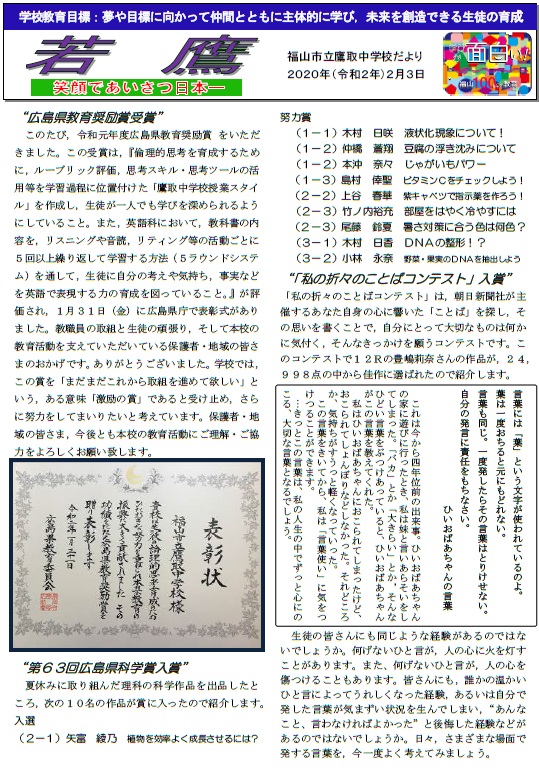 学校教育目標：夢や目標に向かって仲間とともに主体的に学び，未来を創造できる生徒の育成
若　鷹
笑顔であいさつ日本一
福山市立鷹取中学校だより
2020年(令和2年)2月3日
面白い!
福山
100
教育
“広島県教育奨励賞受賞”
このたび，令和元年度広島県教育奨励賞 をいただ
きました。この受賞は，『倫理的思考を育成するため
に，ルーブリック評価，思考スキル・思考ツールの活
用等を学習過程に位置付けた「鷹取中学校授業スタイ
ル」を作成し，生徒が一人でも学びを深められるよう
にしていること。また，英語科において，教科書の内
容を，リスニングや音読，リティング等の活動ごとに
５回以上繰り返して学習する方法（５ラウンドシステ
ム）を通して，生徒に自分の考えや気持ち，事実など
を英語で表現する力の育成を図っていること。』が評
価され，１月３１日（金）に広島県庁で表彰式があり
ました。教職員の取組と生徒の頑張り，そして本校の
教育活動を支えていただいている保護者・地域の皆さ
まのおかげです。ありがとうございました。学校では，
この賞を「まだまだこれから取組を進めて欲しい」と
いう，ある意味「激励の賞」であると受け止め，さら
に努力をしてまいりたいと考えています。保護者・地
域の皆さま，今後とも本校の教育活動にご理解・ご協
力をよろしくお願い致します。
表彰状
福山市立鷹取中学校様
贈り表彰します
広島県教育委員会
“第６３回広島県科学賞入賞”
夏休みに取り組んだ理科の科学作品を出品したと
ころ，次の１０名の作品が賞に入ったので紹介します。
入選
（２－１）矢富　綾乃　植物を効率よく成長させるには？
努力賞
（１－１）木村　日咲　液状化現象について！
（１－２）仲橋　蒼翔　豆腐の浮き沈みについて
（１－２）本沖　奈々　じゃがいもパワー
（１－３）島村　倖聖　ビタミンＣをチェックしよう！
（２－２）上谷　春華　紫キャベツで指示薬を作ろう！
（２－３）竹ノ内裕充　部屋をはやく冷やすには
（２－３）尾藤　鈴夏　暑さ対策に合う色は何色？
（３－１）木村　日香　ＤＮＡの整形！？
（３－２）小林　永奈　野菜・果実のＤＮＡを抽出しよう
“「私の折々のことばコンテスト」入賞”
「私の折々のことばコンテスト」は，朝日新聞社が主
催するあなた自身の心に響いた「ことば」を探し，そ
の思いを書くことで，自分にとって大切なものは何か
に気付く，そんなきっかけを願うコンテストです。こ
のコンテストで１２Ｒの豊嶋莉奈さんの作品が，２４，
９９８点の中から佳作に選ばれたので紹介します。
言葉には「葉」という文字が使われているのよ。
葉は一度おちると元にもどれない。
言葉も同じ。一度発したらその言葉はとりけせない。
自分の発言に責任をもちなさい。
ひいおばあちゃんの言葉
これは今から四年位前の出来事。ひいおばあちゃん
の家に遊びに行ったとき、私は妹と言いあらそいをし
てしまった。「バカ」とか「大きらい」とか、そんな
ひどい言葉をぶつけあっていると、ひいおばあちゃん
がこの言葉を教えてくれた。
私はひいおばあちゃんにおこられてしまったけど、
おこられてしょんぼりなどしなかった。それどころ
か、気持ちがすうっと軽くなっていった。
この言葉をきいてから、私は「言葉使い」に気をつ
けることができます。
…きっとこの言葉は、私の人生の中でずっと心にの
こる、大切な言葉となるでしょう。
生徒の皆さんにも同じような経験があるのではな
いでしょうか。何げないひと言が，人の心に火を灯す
ことがあります。また，何げないひと言が，人の心を
傷つけることもあります。皆さんにも，誰かの温かい
ひと言によってうれしくなった経験，あるいは自分で
発した言葉が気まずい状況を生んでしまい，“あんな
こと、言わなければよかった”と後悔した経験などが
あるのではないでしょうか。日々，さまざまな場面で
発する言葉を，今一度よく考えてみましょう。